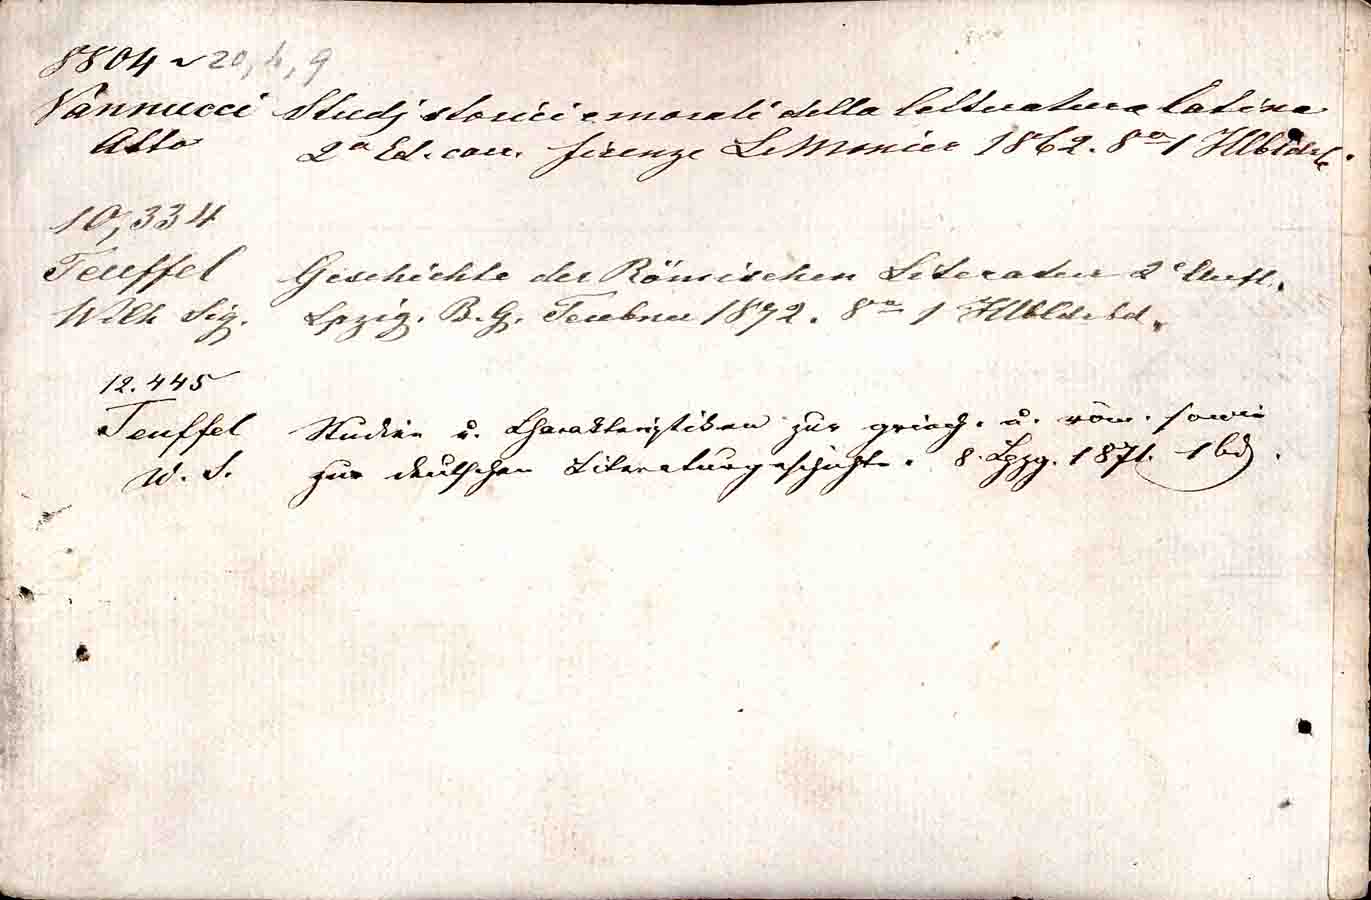 8804 ~ 20, 4, 9
Vannucci Studj storici e morali della letteratura latina
Atto 2ª Ed. corr. firenze Le Monier 1862. 8vo 1 Hlbldrb.
10,334
Teuffel Geschichte der Römischen Literatur 2e Aufl.
Wilh Sig. Lpzig. B. G. Teubner 1872. 8vo 1 Hlbldrbd.
12.445
Teuffel Studien u. Charakteristiken zur griech. u. röm. sowie
W. S. zur deutschen Literaturgeschichte. 8. Lpzg. 1871. 1 bd.